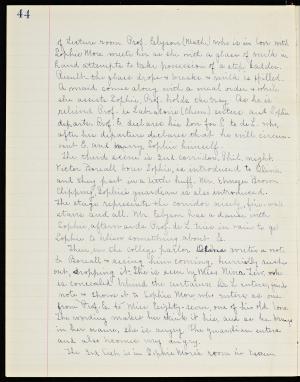 44
of Lecture room Prof. Elyson (Math) who is in love with
Sophie More meets her as she with a glass of milk in
hand attempts to take possession of a step ladder.
Result the glass drops & breaks & milk is spilled.
A maid comes along with a meal order & while
she assists Sophie, Prof. holds the tray. As he is
relieved Prof. de L (chem) enters and Sophie
departs. Prof. E. declares his love for S. to de L. who
after his departure declares that he will circum-
vent E. and marry Sophie himself.
The third scene is 2nd corridor, Phil. night.
Victor Bonsall bores Sophie, is introduced to Olivia
and they part in a little huff. Mr.
Clipping, Sophie's guardian is also introduced.
The stage represents the corridor nicely, fire wall
stairs and all. Mr. Elyson has a dance with
Sophie afterwards. Prof. de L tries in vain to get
Sophie to where something about
Then, in the College parlor. Olivia writes a note
to Bonsall & seeing him coming, hurriedly rushes
out, dropping it. She is seen by Miss Nina Live, who
is concealed behind the curtains. de L enters, finds
note & shows it to Sophie More who enters as one
from Prof. E. to Miss Eighty-seven, one of his old loves.
The wording makes her think it his, and as he brings
in her name, she is angry. The guardian enters
and also becomes very angry.
The 3rd Act is in Sophie More's room he